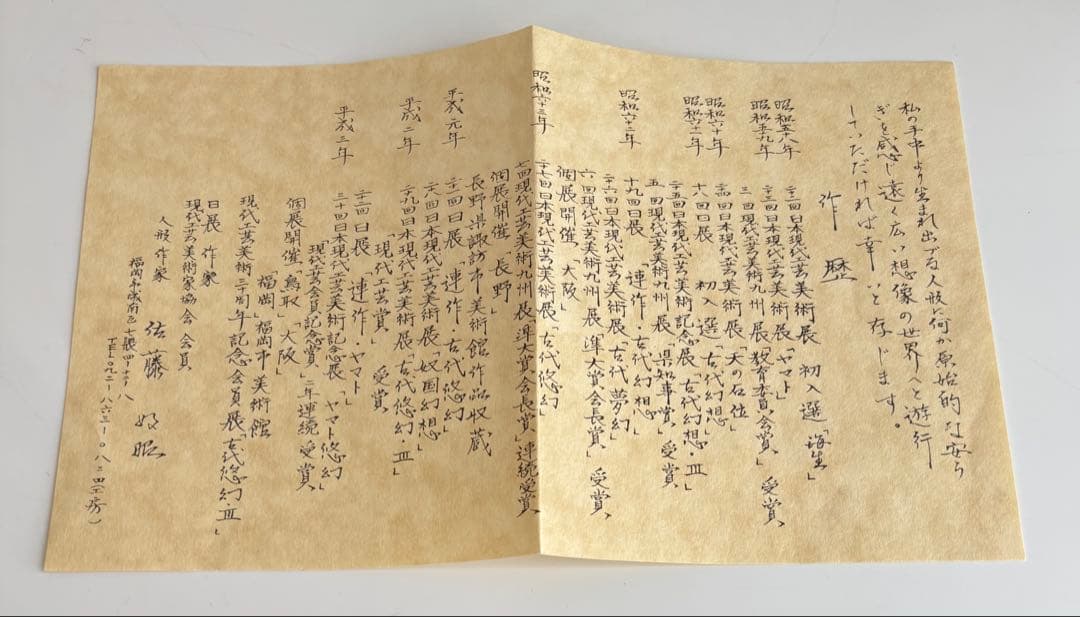 私の手中より生まれ出でる人形に何か原始的な安ら
ぎを感じ遠く広い想像の世界へと遊行
していただければ幸いと存じます。
作歴
昭和五十八年 二十二回日本現代工芸美術展 初入選「海生」
昭和五十九年 二十三回日本現代工芸美術展「ヤマト」
三回現代工芸美術九州展「教育委員会賞」受賞
昭和六十年 二十四回日本現代工芸美術展「天の石位」
十八回日展 初入選「古代幻想」
昭和六十一年 二十五回日本現代工芸美術記念展「古代幻想・Ⅲ」
五回現代工芸美術九州展「県知事賞」受賞
十九回日展「連作・古代幻想」
昭和六十二年 二十六回日本現代工芸美術展「古代夢幻」
六回現代工芸美術九州展「準大賞会長賞」受賞
個展開催「大阪」
昭和六十三年 二十七回日本現代工芸美術展「古代悠幻」
七回現代工芸美術九州展「準大賞会長賞」連続受賞
個展開催「長野」
長野県諏訪市美術館作品収蔵
平成元年 二十一回日展「連作・古代悠幻」
二十八回日本現代工芸美術展「奴国幻想」
平成二年 二十九回日本現代工芸美術展「古代悠幻・Ⅲ」
「現代工芸賞」受賞
二十二回日展「連作・ヤマト」
平成三年 三十回日本現代工芸美術記念展「ヤマト悠幻」
「現代工芸会員記念賞」二年連続受賞
個展開催「鳥取」「大阪」
「福岡」福岡市美術館
現代工芸美術三十周年記念会員展「古代悠幻・Ⅲ」
日展 作家
現代工芸美術家協会会員
人形作家 佐藤
福岡市城南区七隈四-十一-八
TEL〇九二-八六三-〇八二四(工房)